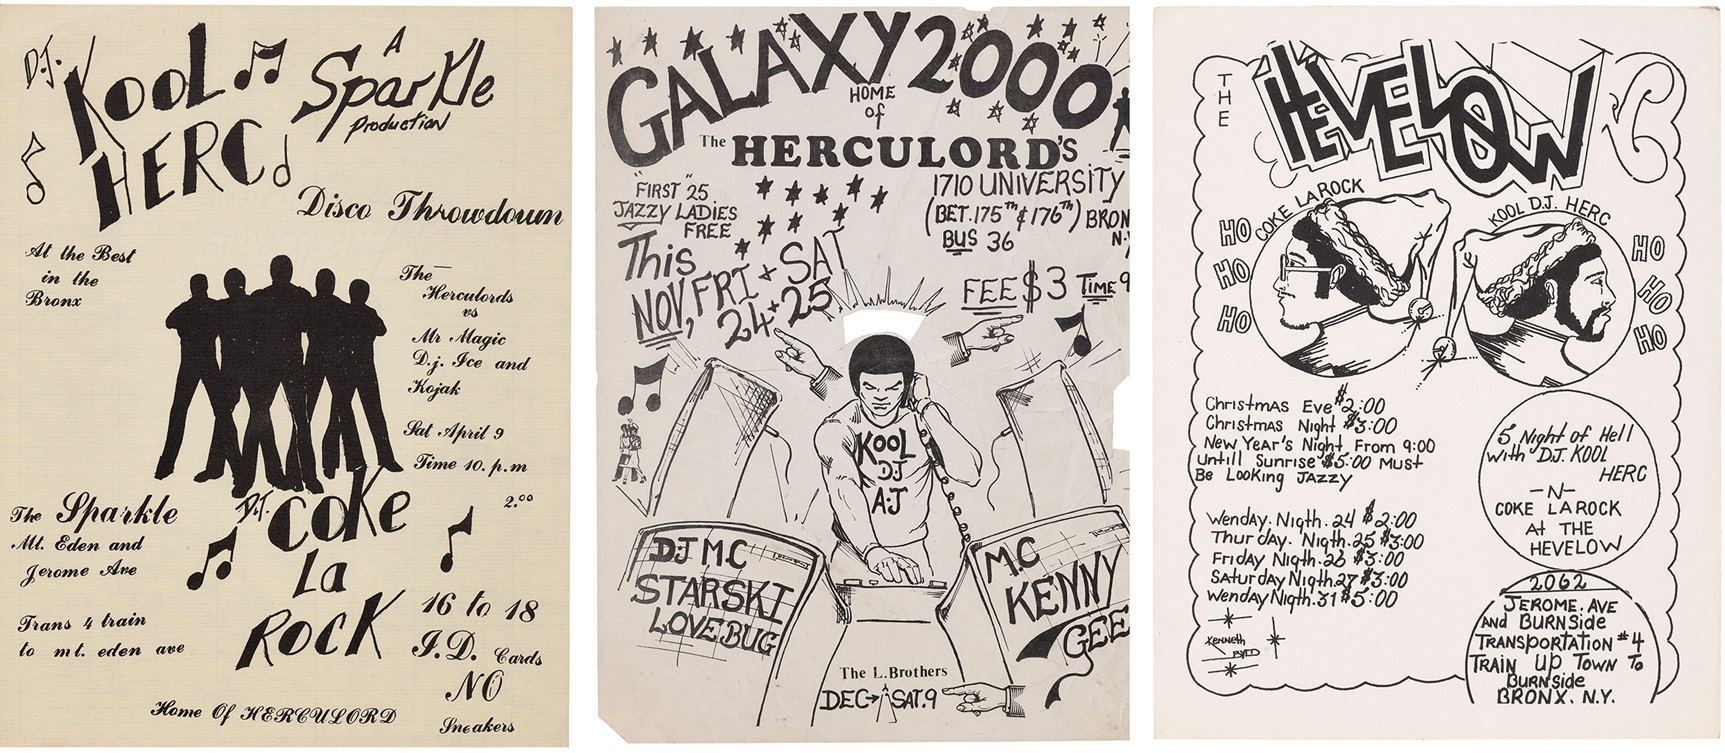 D.J.
KOOL
HERC
A
Sparkle
Production
Disco Throwdown
At the Best
in the
Bronx
The
Herculords
vs
Mr Magic
D.j. Ice and
Kojak
Sat April 9
Time 10. p.m
2.00
The Sparkle
Mt. Eden and
Jerome Ave
D.J.
COKE
La
ROCK
Trans 4 train
to mt. eden ave
16 to 18
I.D. Cards
NO
Sneakers
Home Of HERCULORD
GALAXY 2000
HOME
of
The HERCULORD'S
"FIRST" 25
JAZZY LADIES
FREE
1710 UNIVERSITY
(BET. 175th & 176th) BRON
N.Y
BUS 36
This
NOV, FRI + SAT
24 + 25
FEE $3 TIME 9
KOOL
DJ
A.J
DJ M.C
STARSKI
LOVE BUG
M.C
KENNY
GEE
The L. Brothers
DEC→ SAT. 9
THE
HEVELOW
COKE LA ROCK
KOOL D.J. HERC
HO
HO
HO
HO
HO
HO
Christmas Eve $2:00
Christmas Night $3:00
New Year's Night From 9:00
Untill Sunrise $5:00 Must
Be Looking Jazzy
5 Night of Hell
with D.J. KOOL
HERC
-N-
COKE LA ROCK
At THE
HEVELOW
Wenday. Nigth. 24 $2:00
Thurday. Nigth. 25 $3:00
Friday Nigth. 26 $3:00
Saturday Nigth. 27 $3:00
Wenday Nigth. 31 $5:00
Kenneth
BYED
2062
JEROME. AVE
AND BURNSIDE
TRANSPORTATION #4
TRAIN UP TOWN TO
BURNSIDE
BRONX. N.Y.